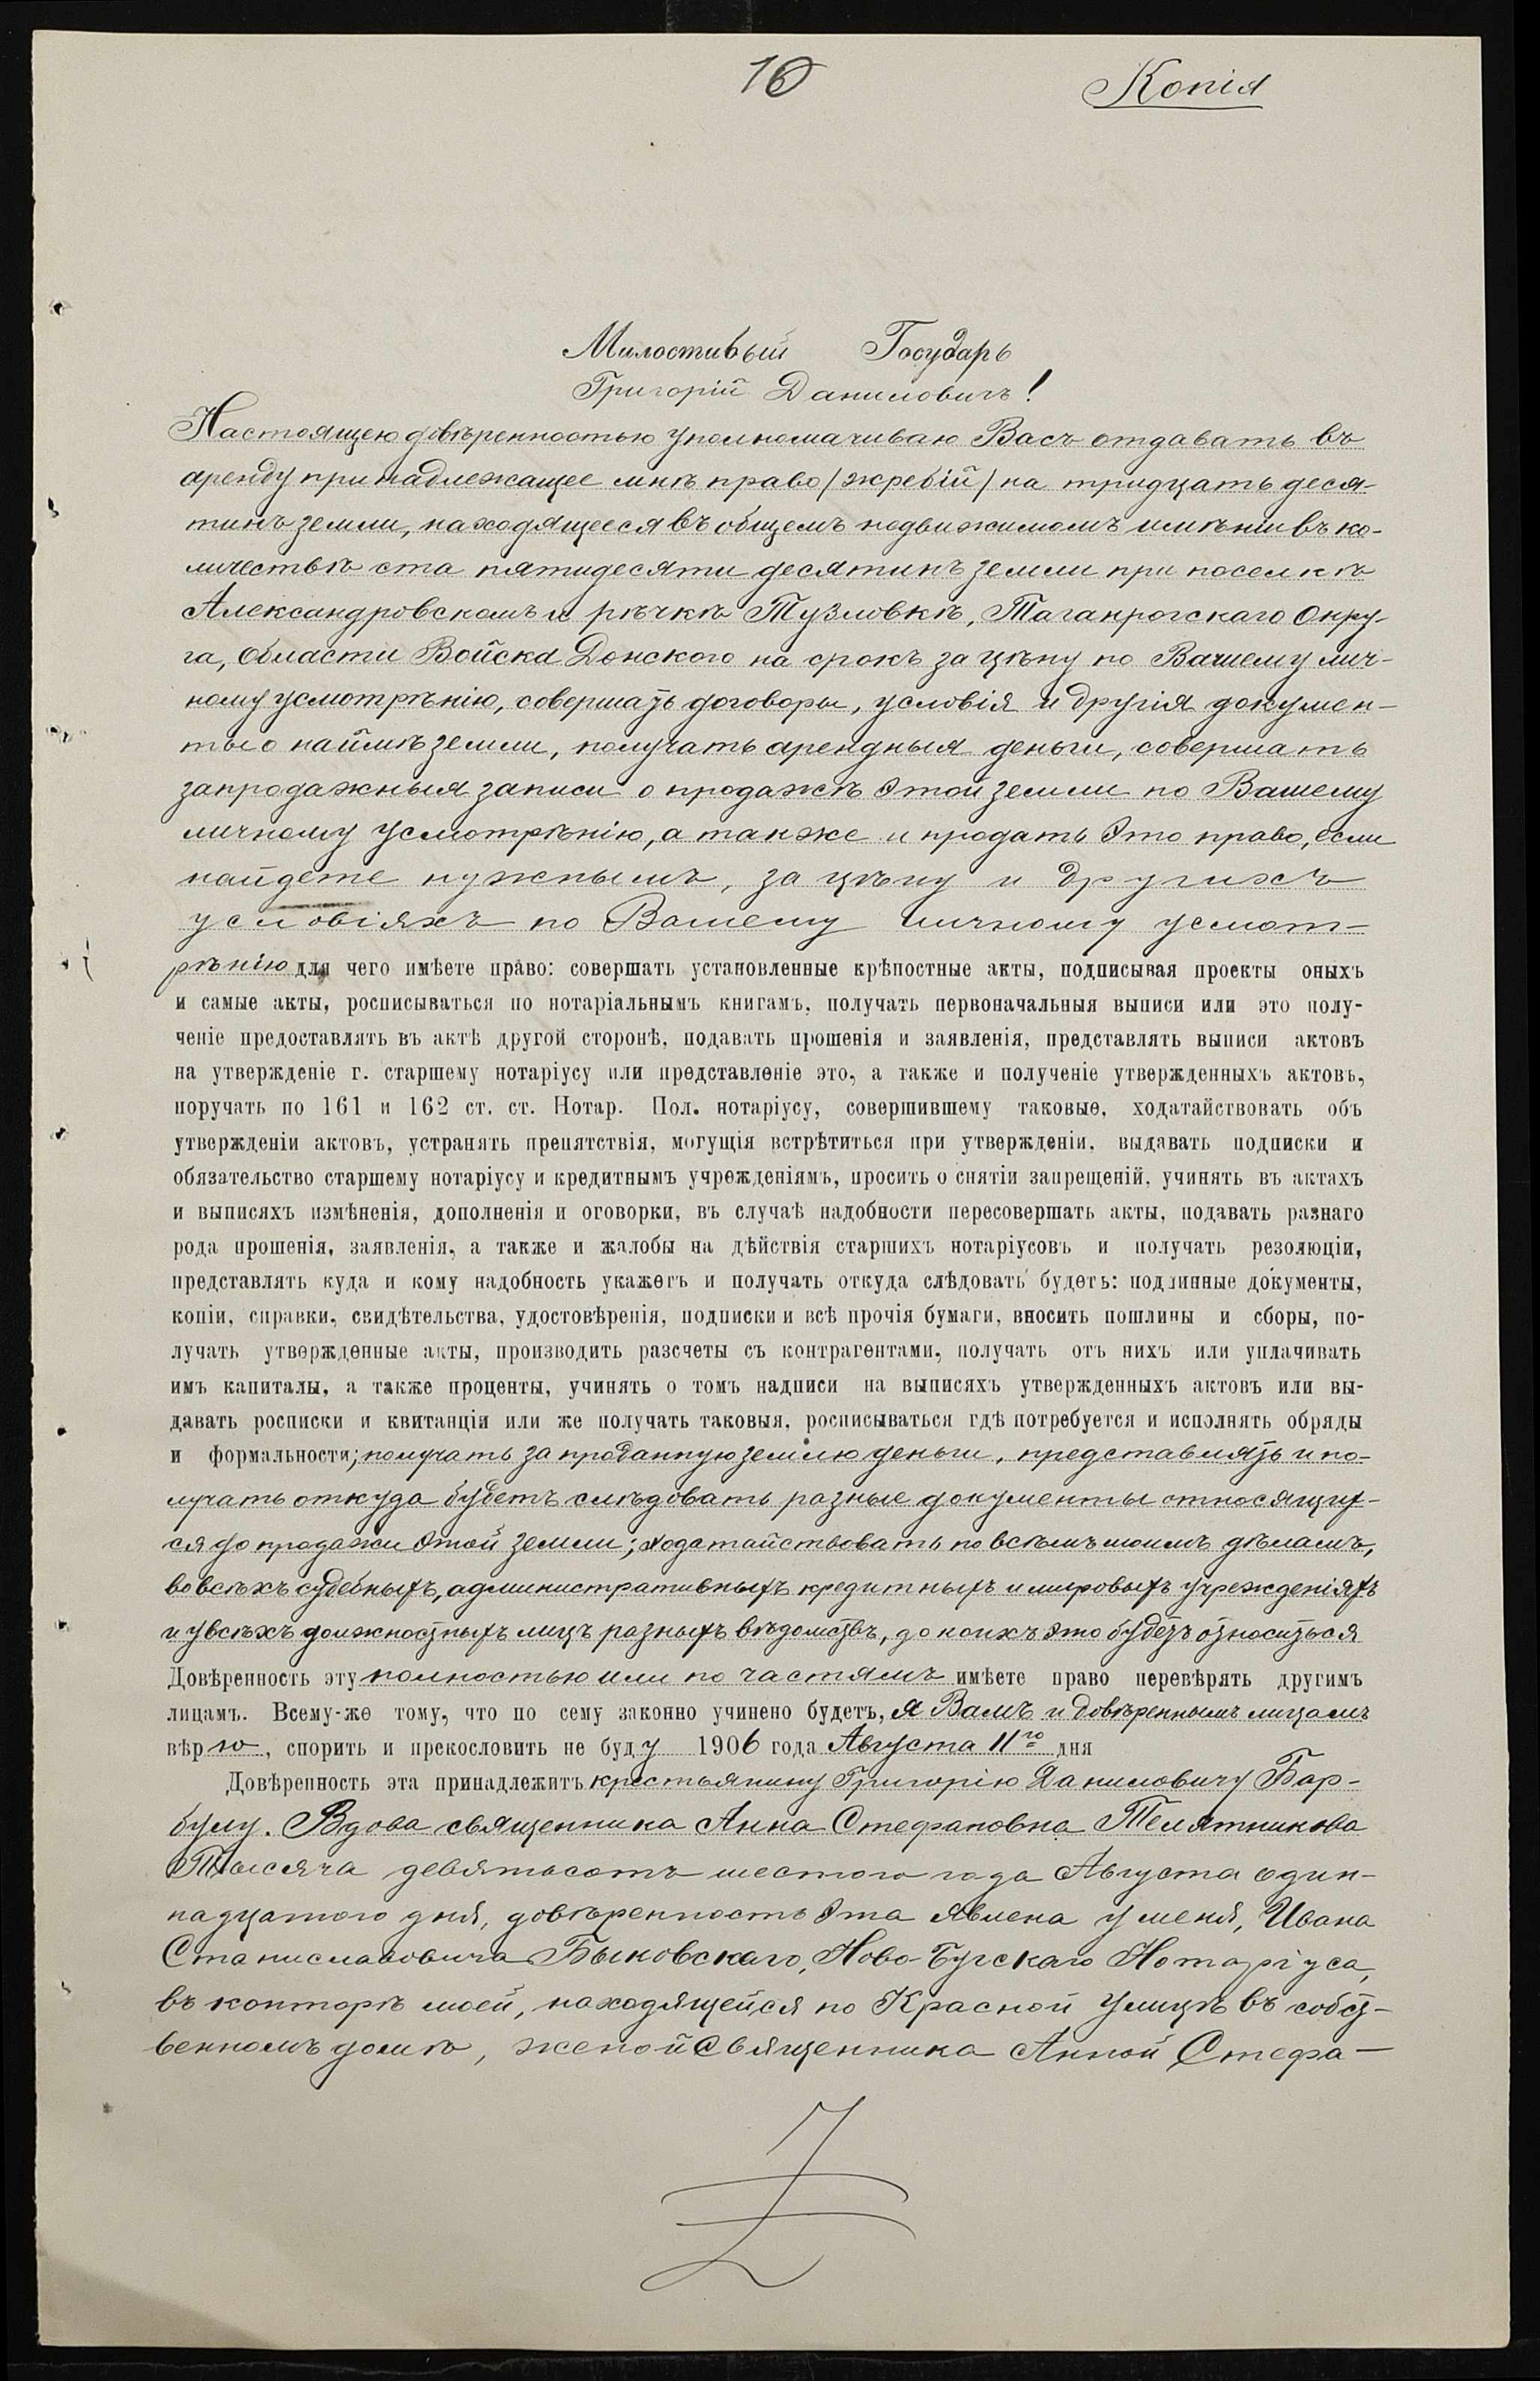 10
Копія
Милостивый Государь
Григорій Даниловичъ!
Настоящею довѣренностью уполномачиваю Васъ отдавать въ
аренду принадлежащее мнѣ право /жребій/ на тридцать деся-
тинъ земли, находящееся въ общемъ недвижимомъ имѣніи въ ко-
личествѣ ста пятидесяти десятинъ земли при поселкѣ
Александровскомъ и рѣчкѣ Тузловкѣ, Таганрогскаго Окру-
га, Области Войска Донского на срокъ за цѣну по Вашему лич-
ному усмотрѣнію, совершать договоры, условія и другія докумен-
ты о наймѣ земли, получать арендныя деньги, совершать
запродажныя записи о продажѣ этой земли по Вашему
личному усмотрѣнію, а также и продать это право, если
найдете нужнымъ, за цѣну и другихъ
условіяхъ по Вашему личному усмот-
рѣнію для чего имѣете право: совершать установленные крѣпостные акты, подписывая проекты оныхъ
и самые акты, росписываться по нотаріальнымъ книгамъ, получать первоначальныя выписи или это полу-
ченіе предоставлять въ актѣ другой сторонѣ, подавать прошенія и заявленія, представлять выписи актовъ
на утвержденіе г. старшему нотаріусу или представленіе это, а также и полученіе утвержденныхъ актовъ,
поручать по 161 и 162 ст. ст. Нотар. Пол. нотаріусу, совершившему таковые, ходатайствовать объ
утвержденіи актовъ, устранять препятствія, могущія встрѣтиться при утвержденіи, выдавать подписки и
обязательство старшему нотаріусу и кредитнымъ учрежденіямъ, просить о снятіи запрещеній, учинять въ актахъ
и выписяхъ измѣненія, дополненія и оговорки, въ случаѣ надобности пересовершать акты, подавать разнаго
рода прошенія, заявленія, а также и жалобы на дѣйствія старшихъ нотаріусовъ и получать резолюціи,
представлять куда и кому надобность укажетъ и получать откуда слѣдовать будетъ: подлинные документы,
копіи, справки, свидѣтельства, удостовѣренія, подписки и всѣ прочія бумаги, вносить пошлины и сборы, по-
лучать утвержденные акты, производить разсчеты съ контрагентами, получать отъ нихъ или уплачивать
имъ капиталы, а также проценты, учинять о томъ надписи на выписяхъ утвержденныхъ актовъ или вы-
давать росписки и квитанціи или же получать таковыя, росписываться гдѣ потребуется и исполнять обряды
и формальности; получать за проданную землю деньги, представлять и по-
лучать откуда будетъ слѣдовать разные документы относящіе-
ся до продажи этой земли; ходатайствовать по всѣмъ моимъ дѣламъ,
во всѣхъ судебныхъ, административныхъ кредитныхъ и мировыхъ учрежденіяхъ
и у всѣхъ должностныхъ лицъ разныхъ вѣдомствъ, до коихъ это будетъ относиться
Довѣренность эту полностью или по частямъ имѣете право перевѣрять другимъ
лицамъ. Всему-же тому, что по сему законно учинено будетъ, я Вамъ и довѣреннымъ лицамъ
вѣрю, спорить и прекословить не буду 1906 года Августа 11го дня
Довѣренность эта принадлежитъ крестьянину Григорію Даниловичу Бар-
булу. Вдова священника Анна Стефановна Телятникова
Тысяча девятьсотъ шестого года Августа один-
надцатого дня, довѣренность эта явлена у меня, Ивана
Станиславовича Быковскаго, Ново-Бугскаго Нотаріуса,
въ конторѣ моей, находящейся по Красной улицѣ въ собст-
венномъ домѣ, женой священника Анной Стефа-